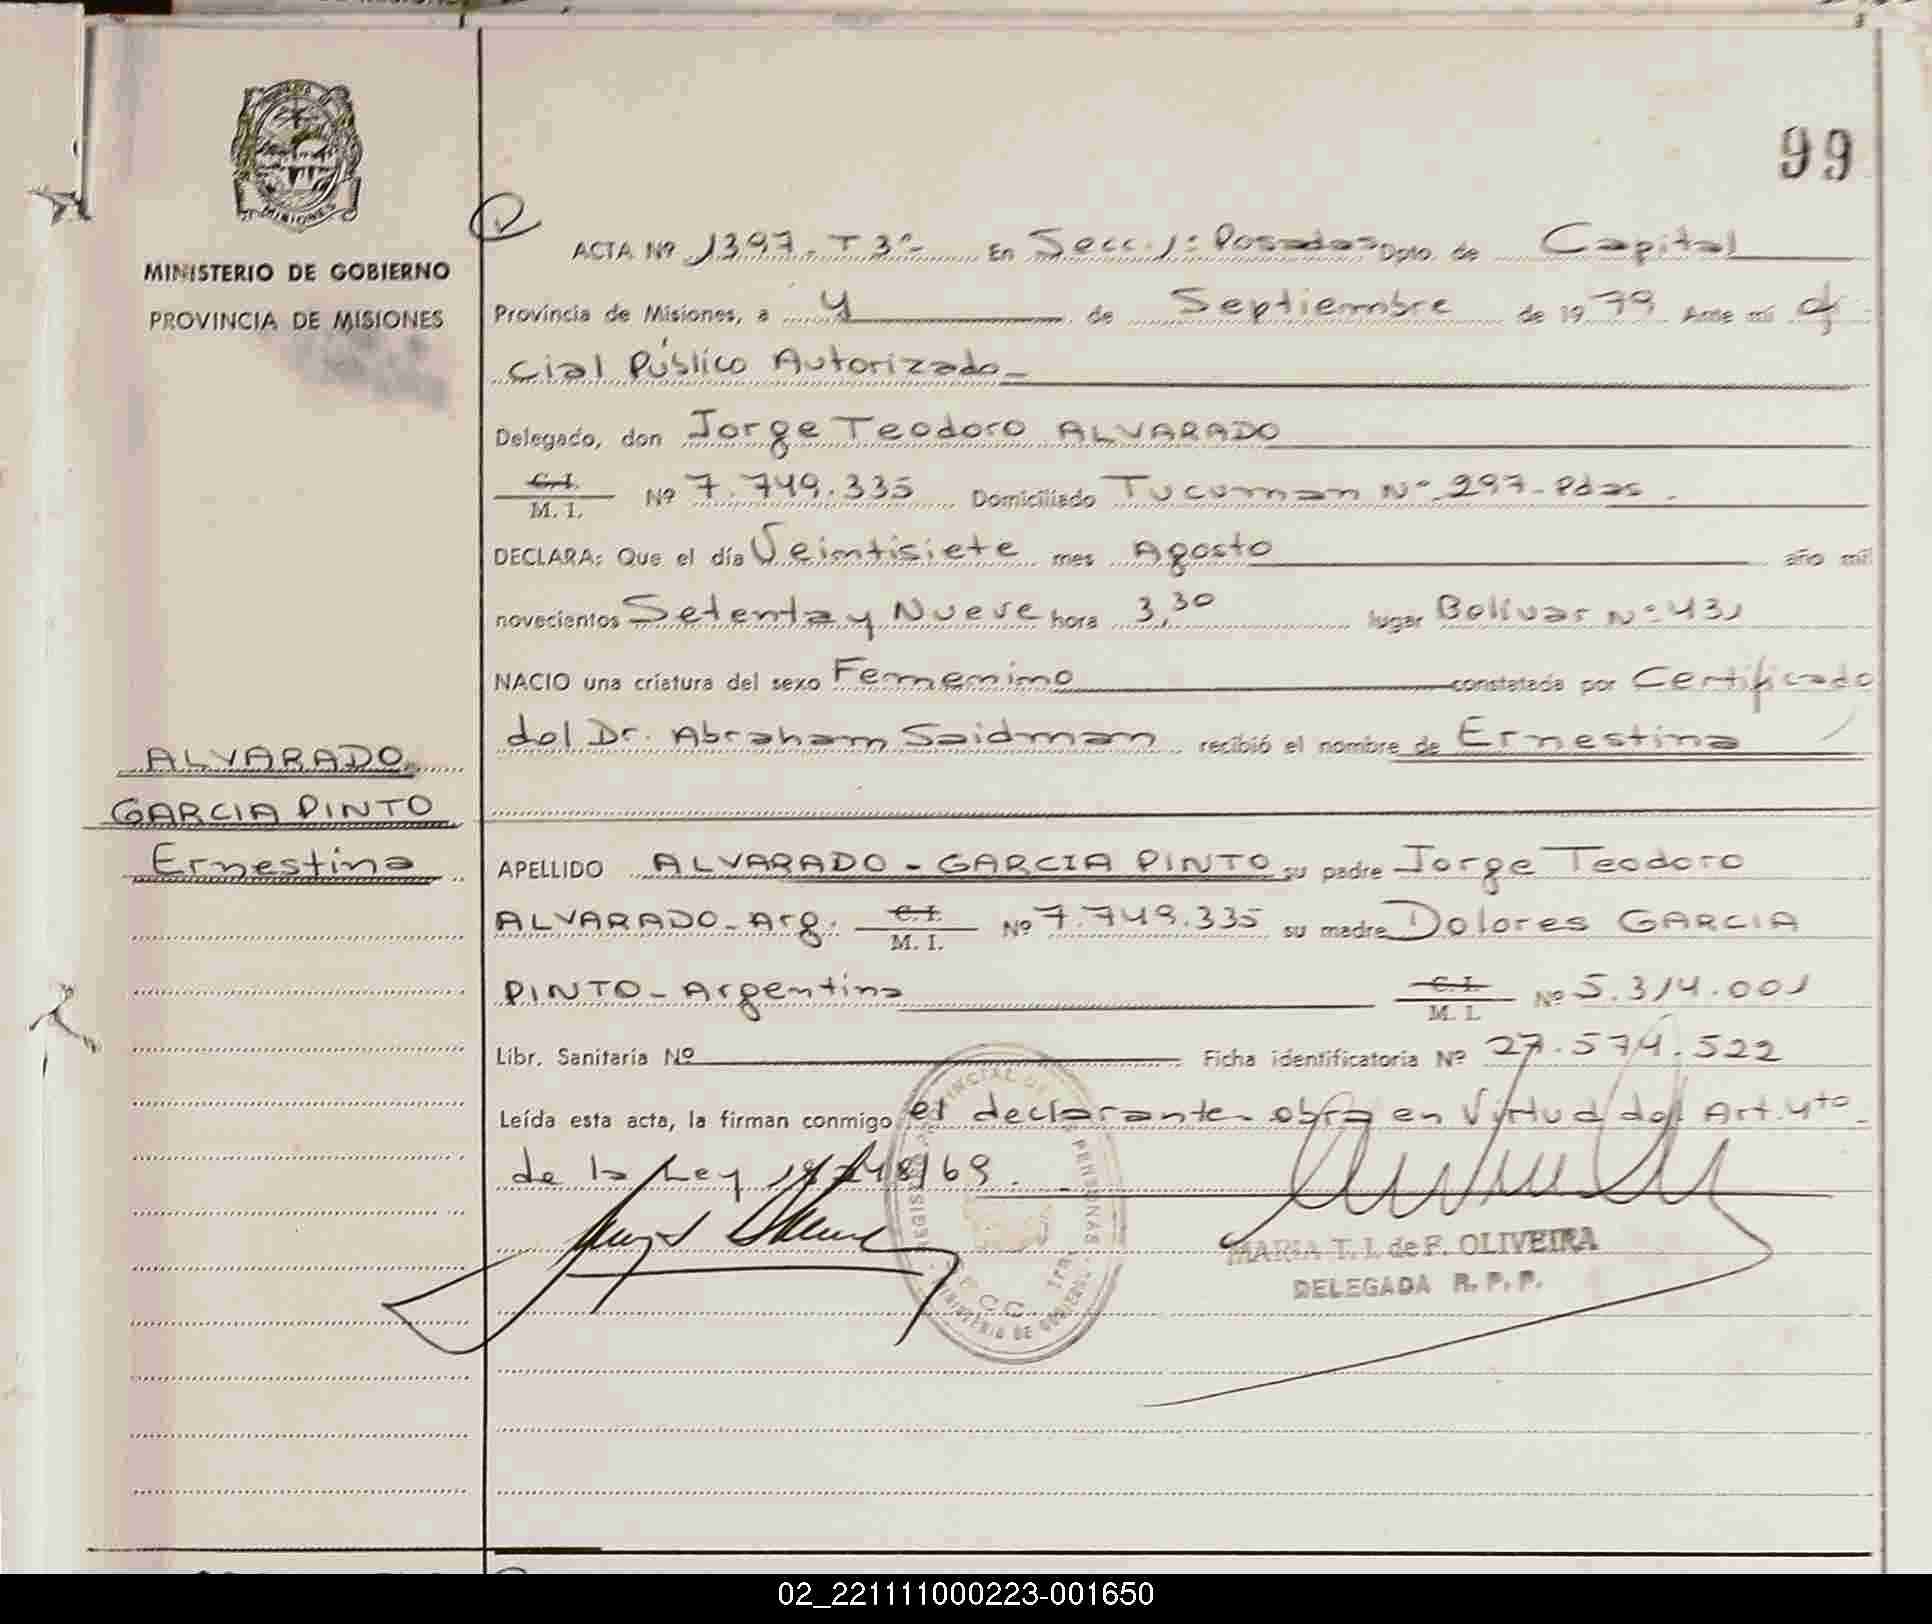 99
MISIONES
MINISTERIO DE GOBIERNO
PROVINCIA DE MISIONES
ACTA Nº 1397. T 3º- En Secc. 1ª Posadas Dpto. de Capital
Provincia de Misiones, a 4 de Septiembre de 1979 Ante mi Ofi
cial Público Autorizado-
Delegado, don Jorge Teodoro ALVARADO
C.I. M. I. Nº 7.749.335 Domiciliado Tucuman Nº 297- Pdas.
DECLARA: Que el día Veintisiete mes Agosto año mil
novecientos Setenta y Nueve hora 3,30 lugar Bolívar Nº 431
NACIO una criatura del sexo Femenino constatada por Certificado
del Dr. Abraham Saidman recibió el nombre de Ernestina
ALVARADO
GARCIA PINTO
Ernestina
APELLIDO ALVARADO - GARCIA PINTO su padre Jorge Teodoro
ALVARADO- Arg. C.I. M. I. Nº 7.749.335 su madre Dolores GARCIA
PINTO- Argentina C. I. M. I. Nº 5.314.001
Libr. Sanitaria Nº Ficha identificatoria Nº 27.574.522
Leída esta acta, la firman conmigo el declarante- obra en Virtud del Art. 4to-
de la Ley 18248/69.
MARIA T. I. de F. OLIVEIRA
DELEGADA R. P. P.
02_221111000223-001650